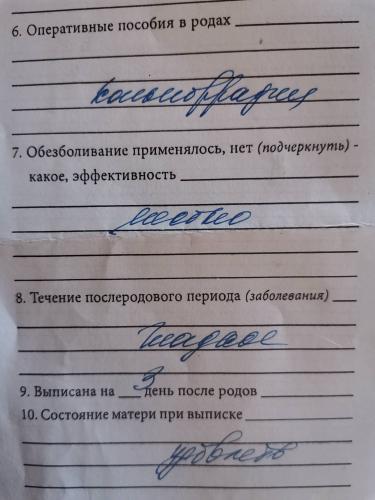 6. Оперативные пособия в родах
кольпоррафия
7. Обезболивание применялось, нет (подчеркнуть) -
какое, эффективность
местно
8. Течение послеродового периода (заболевания)
гладкое
9. Выписана на 3 день после родов
10. Состояние матери при выписке
удовлетв